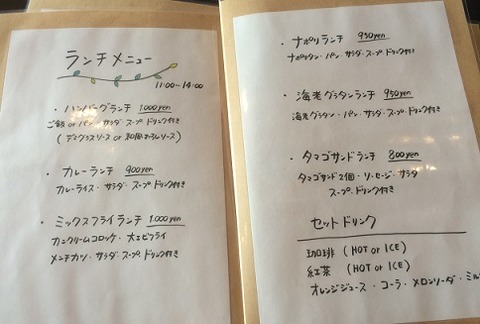 ランチメニュー
11:00~14:00
・ハンバーグランチ 1,000yen
ご飯 or パン・サラダ・スープ ドリンク付き
(デミグラスソース or 和風おろしソース)
・カレーランチ 900yen
カレーライス・サラダ・スープ ドリンク付き
・ミックスフライランチ 1,000yen
カニクリームコロッケ・大エビフライ
メンチカツ・サラダ・スープ ドリンク付き
・ナポリランチ 950yen
ナポリタン・パン・サラダ・スープ ドリンク付き
・海老グラタンランチ 950yen
海老グラタン・パン・サラダ・スープ ドリンク付き
・タマゴサンドランチ 800yen
タマゴサンド2個・ソーセージ・サラダ
スープ・ドリンク付き
セットドリンク
珈琲 (HOT or ICE)
紅茶 (HOT or ICE)
オレンジジュース・コーラ・メロンソーダ・ミル